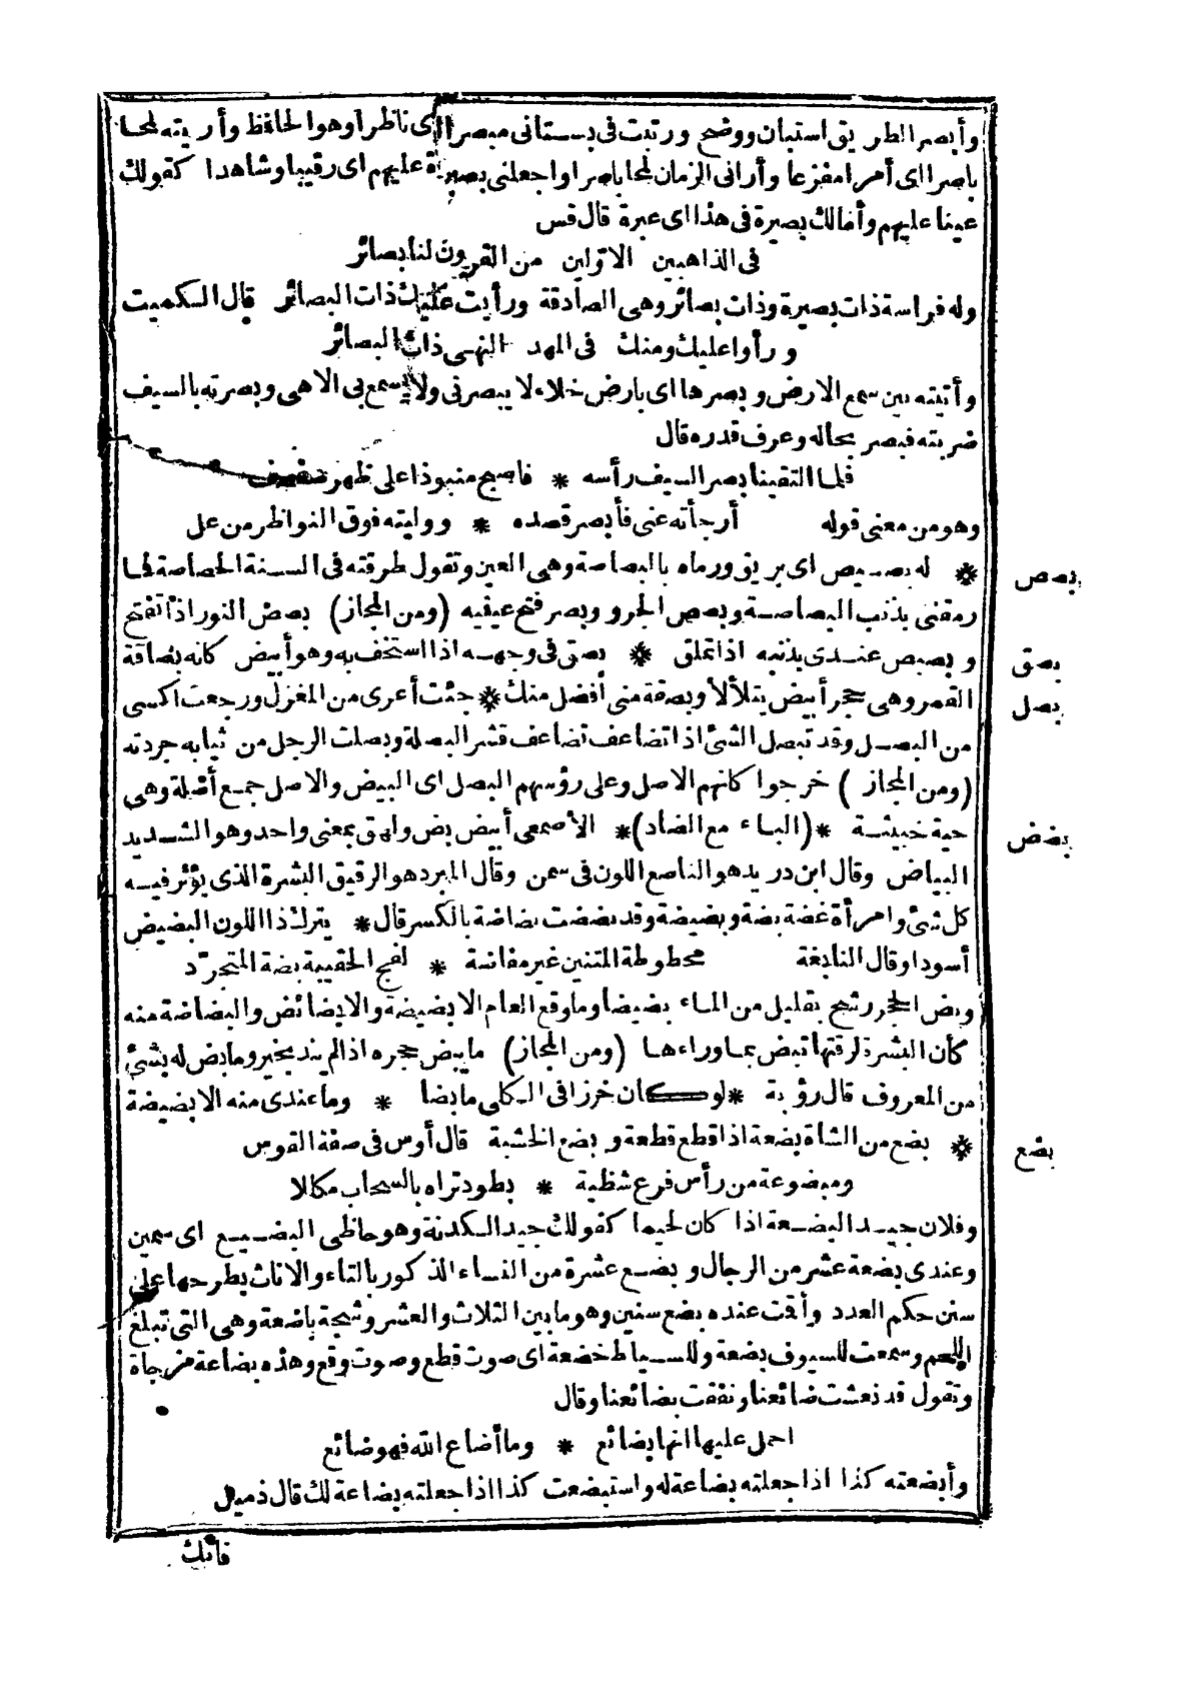 وأبصر الطريق استبان ووضح ورتبت فى بستانى مبصرا اى ناظرا وهو الحافظ وأريته لمحا
باصرا اى أمرا مفزعا وأرانى الزمان لمحا باصرا واجعلنى بصيرة عليهم اى رقيبا وشاهدا كقولك
عينا عليهم وأمالك بصيرة فى هذا اى عبرة قال قس
فى الذاهبين الاولين من القرون لنا بصائر
وله فراسة ذات بصيرة وذات بصائر وهى الصادقة ورأيت عليك ذات البصائر قال الكميت
ورأوا عليك ومنك فى المهد النهى ذات البصائر
وأتيته بين سمع الارض وبصرها اى بارض خلاء لا يبصرنى ولا يسمع بى الا هى وبصرته بالسيف
ضربته فبصر بحاله وعرف قدره قال
فلما التقينا بصر السيف رأسه * فاصبح منبوذا على ظهر صفصف
وهو من معنى قوله أرجأته عنى فأبصر قصده * ووليته فوق النواظر من عل
بصص * له بصيص اى بريق ورماه بالبصاصة وهى العين وتقول طرقته فى السنة الخصاصة فما
رمقنى بذنب البصاصة وبصص الجرو وبصر فتح عينيه (ومن المجاز) بصص النور اذا تفتح
بصق وبصبص عندى بذنبه اذا تملق * بصق فى وجهه اذا استخف به وهو أبيض كانه بصاقة
بصل القمر وهى حجر أبيض يتلألأ وبصقة منى أفضل منك * جئت أعرى من المغزل ورجعت اكسى
من البصل وقد تبصل الشئ اذا تضاعف تضاعف قشر البصلة وبصلت الرجل من ثيابه جردته
(ومن المجاز) خرجوا كانهم الاصل وعلى رؤسهم البصل اى البيض والاصل جمع أصلة وهى
بضض حية خبيثة *(الباء مع الضاد)* الأصمعى أبيض بض ولهق بمعنى واحد وهو الشديد
البياض وقال ابن دريد هو الناصع اللون فى سمن وقال المبرد هو الرقيق البشرة الذى يؤثر فيه
كل شئ وامرأة غضة بضة وبضيضة وقد بضضت بضاضة بالكسر قال * يترك ذا اللون البضيض
أسودا وقال النابغة محطوطة المتنين غير مفاضة * نفج الحقيبة بضة المتجرد
وبض الحجر رشح بقليل من الماء بضيضا وما وقع العام الا بضيضة والا بضائض والبضاضة منه
كأن البشرة لرقتها تبض بما وراءها (ومن المجاز) ما يبض حجره اذا لم يند بخير وما بض له بشئ
من المعروف قال رؤبة * لو كان خرزا فى الكلى ما بضا * وما عندى منه الا بضيضة
بضع * بضع من الشاة بضعة اذا قطع قطعة وبضع الخشبة قال أوس فى صفة القوس
ومبضوعة من رأس فرع شظية * بطود تراه بالسحاب مكللا
وفلان جيد البضعة اذا كان لحيما كقولك جيد الكدنة وهو خاظى البضيع اى سمين
وعندى بضعة عشر من الرجال وبضع عشرة من النساء الذكور بالتاء والاناث بطرحها على
سنن حكم العدد وأقت عنده بضع سنين وهو ما بين الثلاث والعشر وشجة باضعة وهى التى تبلغ
اللحم وسمعت للسيوف بضعة وللسياط خضعة اى صوت قطع وصوت وقع وهذه بضاعة مزجاة
وتقول قد نعشت ضائعنا ونفقت بضائعنا وقال
احمل عليها انها بضائع * وما أضاع الله فهو ضائع
وأبضعته كذا اذا جعلته بضاعة له واستبضعت كذا اذا جعلته بضاعة لك قال ذميل
فانك